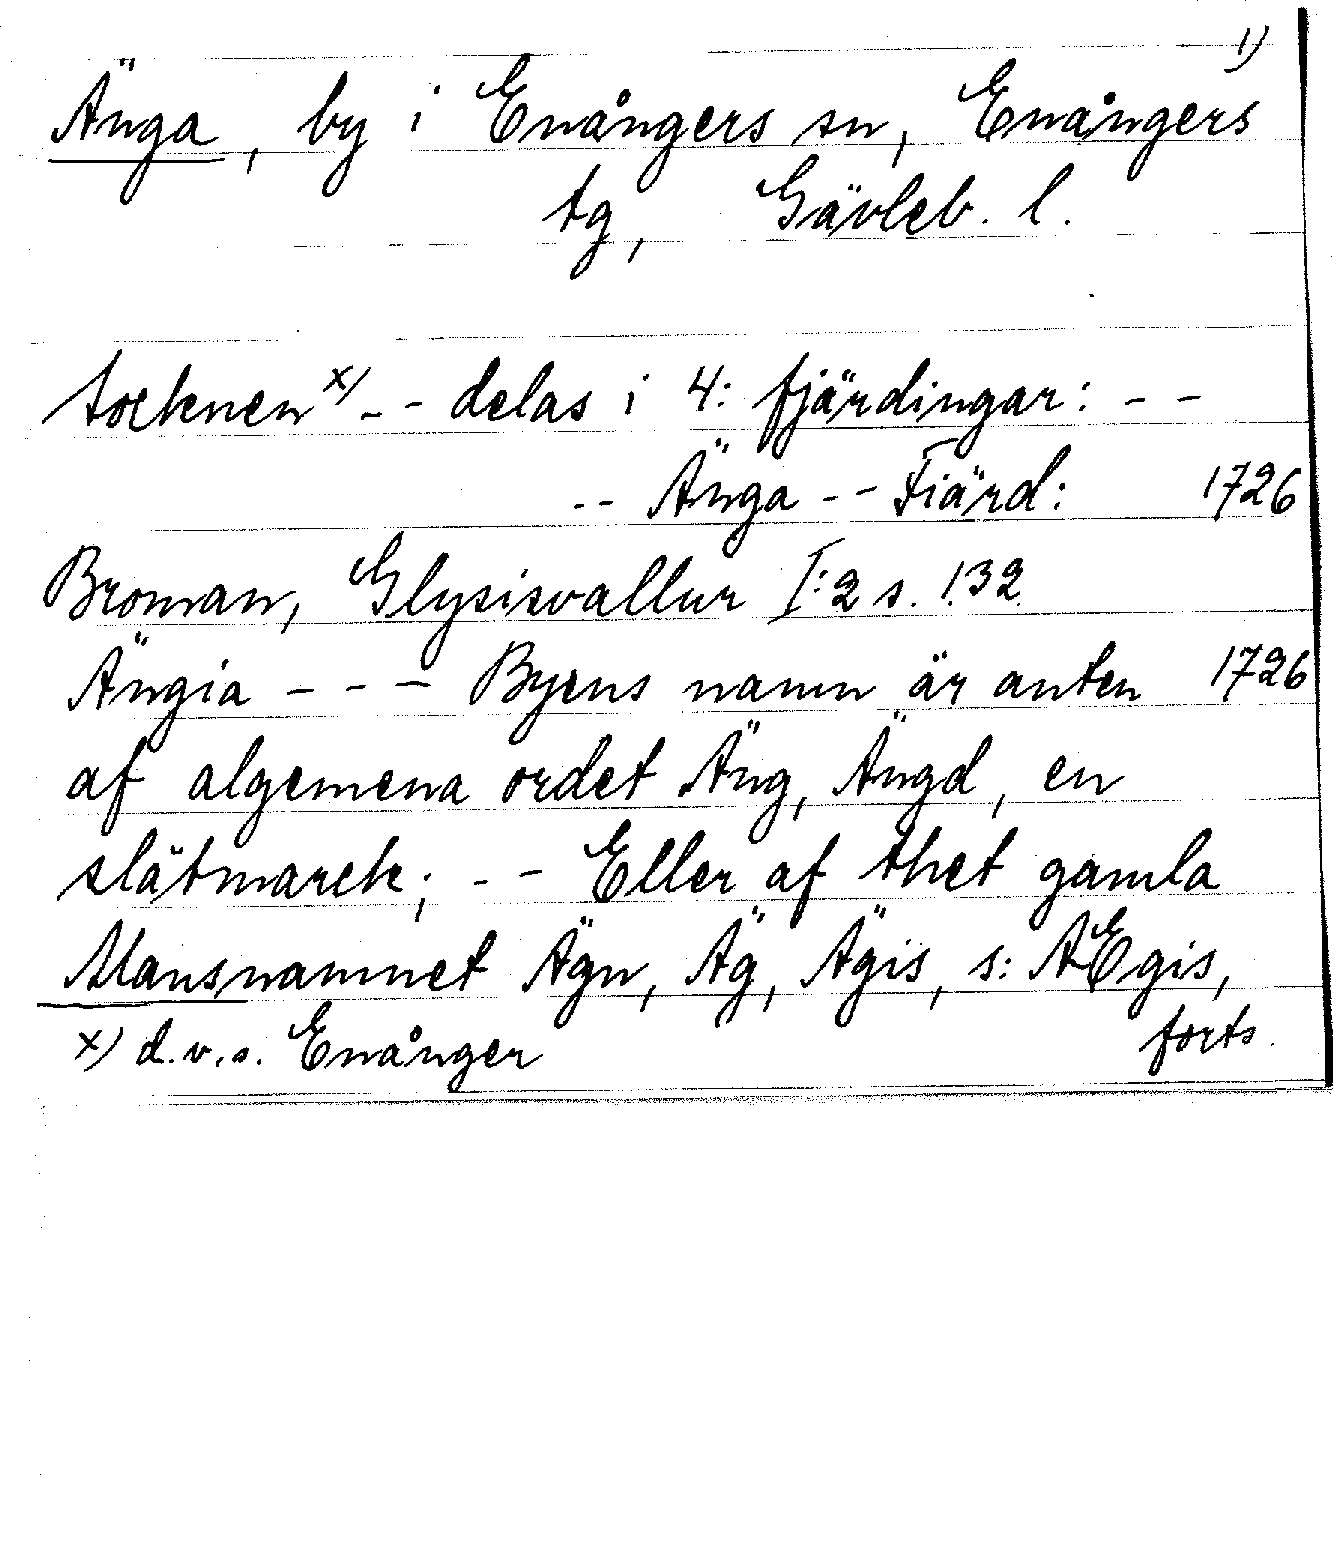 1)
Änga, by i Enångers sn, Enångers
tg, Gävleb. l.
Socknen x) - - delas i 4: fjärdingar: - -
- - Änga - - Fiärd: 1726
Broman, Glysisvallur I:2 s. 132.
Ängia - - - Byens namn är anten 1726
af algemena ordet Äng, Ängd, en
slätmarck; - - Eller af thet gamla
Mansnamnet Ägn, Äg, Ägis, s: AEgis,
x) d.v.s. Enånger forts.